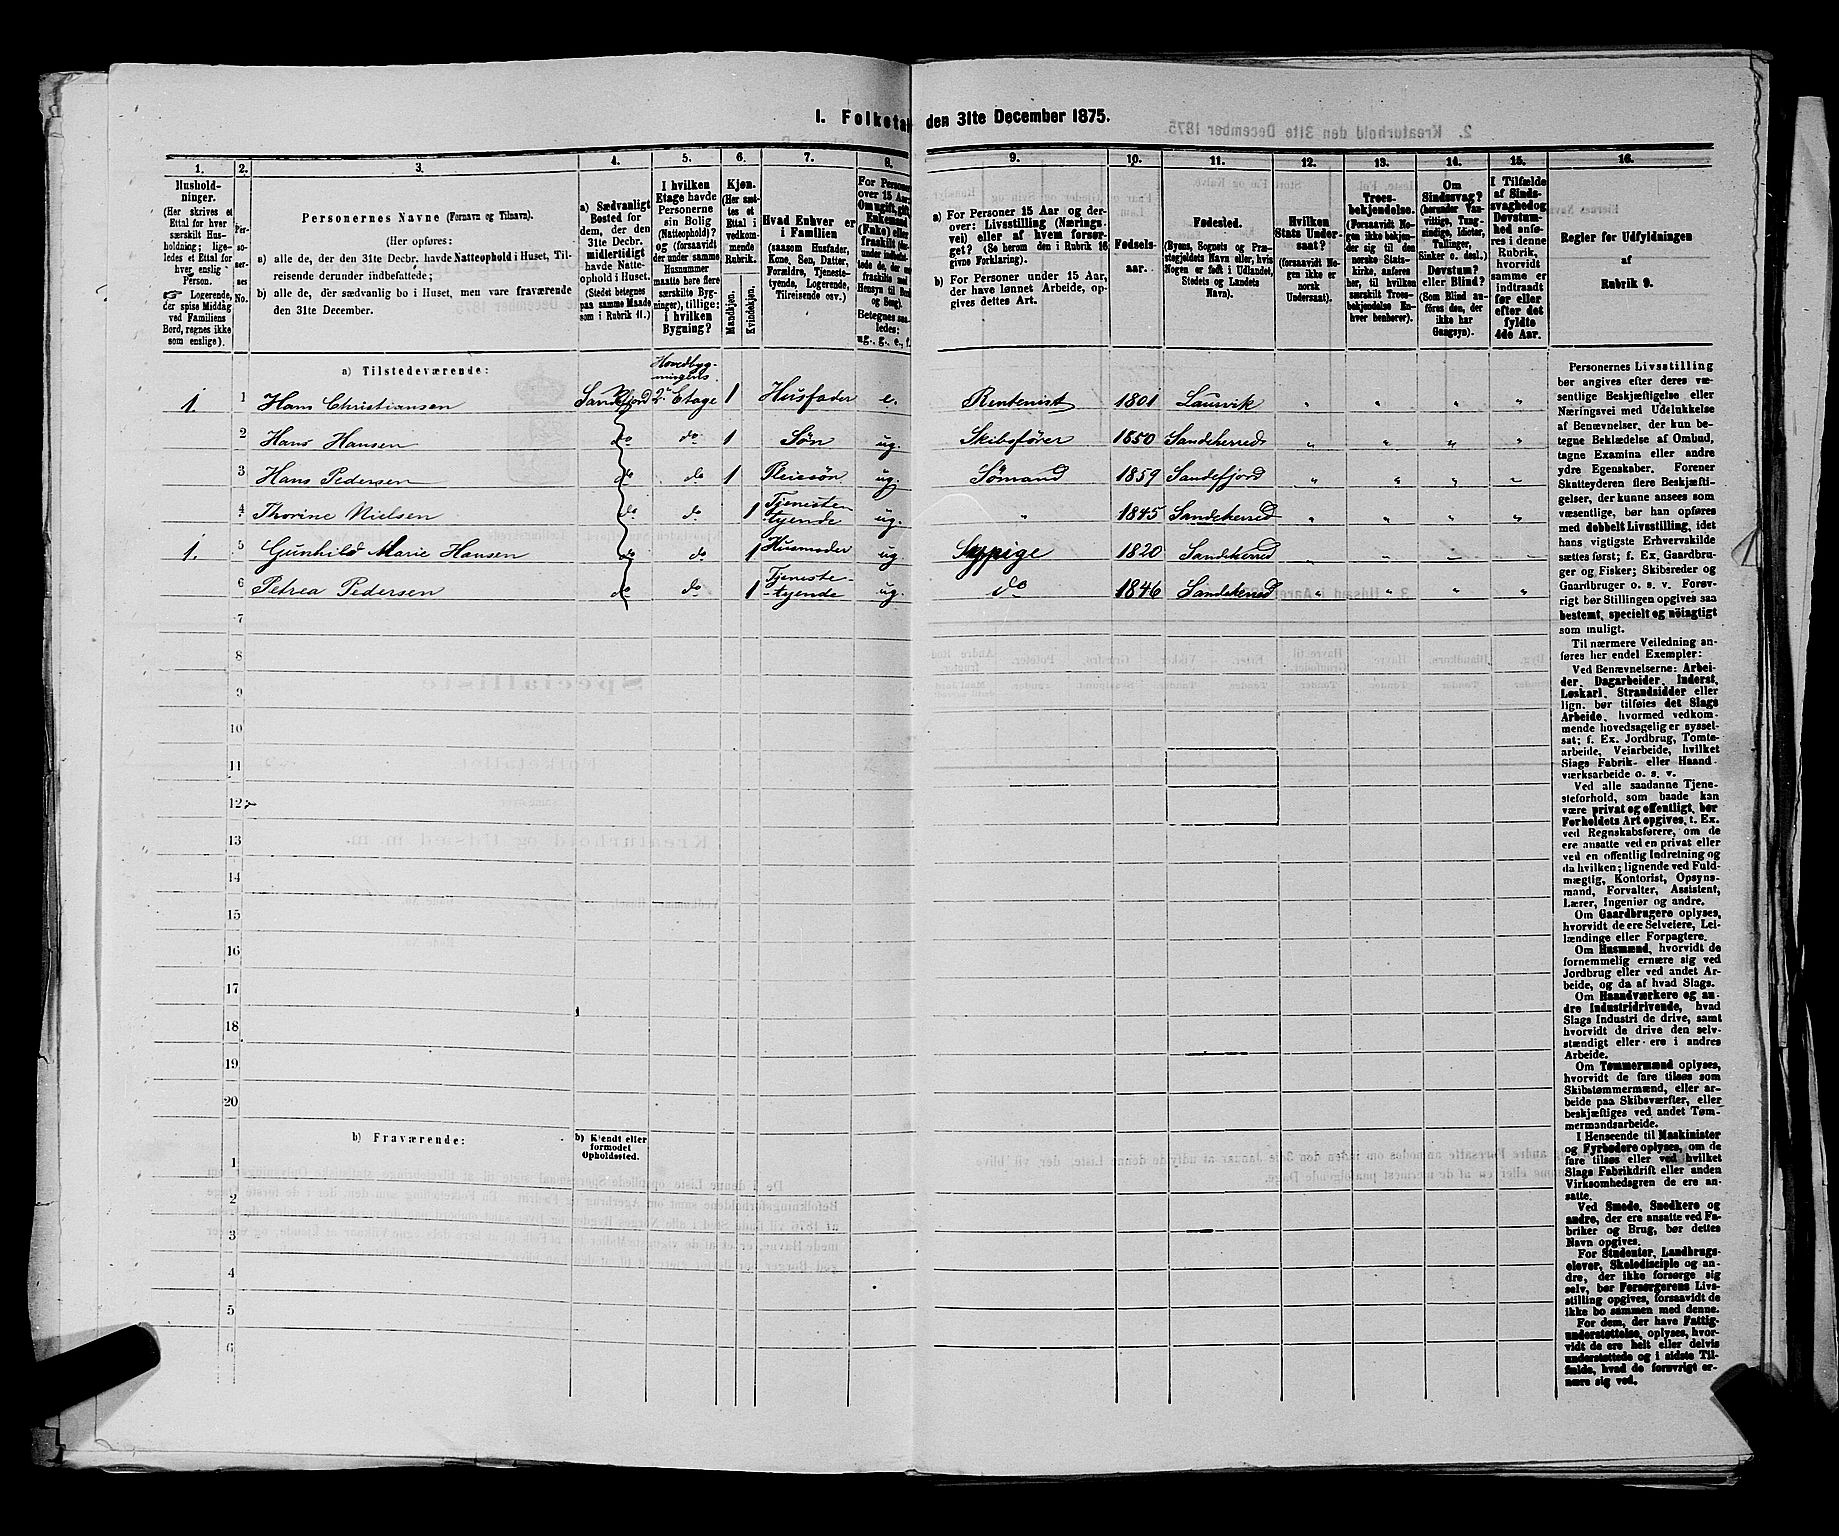 I. Folketal den 31te December 1875.
1. 2. 3. 4. 5. 6. 7. 8. 9. 10. 11. 12. 13. 14. 15. 16.
Hushold-
ninger.
(Her skrives et
Ettal for hver
særskilt Hus-
holdning; lige-
ledes et Ettal for
hver enslig
Person.
☞ Logerende,
der spise Middag
ved Familiens
Bord, regnes ikke
som enslige).
Per-
so-
ner-
nes
No.
Personernes Navne (Fornavn og Tilnavn).
(Her opføres:
a) alle de, der den 31te Decbr. havde Natteophold i Huset, Til-
reisende derunder indbefattede;
b) alle de, der sædvanlig bo i Huset, men vare fraværende
den 31te December.
a) Sædvanligt
Bosted for
dem, der den
31te Decbr.
midlertidigt
havde Natte-
ophold i Huset.
(Stedet betegnes
paa samme Maade
som i Rubrik 11.)
I hvilken
Etage havde
Personerne
sin Bolig
(Natteophold)?
og (forsaavidt
der under samme
Husnummer
maatte høre flere
særskilte Byg-
ninger), tillige:
i hvilken
Bygning?
Kjøn.
(Her sæt-
tes et
Ettal i
vedkom-
mende
Rubrik.
Mandkjøn.
Kvindekjøn.
Hvad Enhver er
i Familien
(saasom Husfader,
Kone, Søn, Datter,
Forældre, Tjeneste-
tyende, Logerende,
Tilreisende osv.)
For Personer
over 15 Aar:
Om ugift, gift,
Enkemand
(Enke) eller
fraskilt
Betegnes saa-
ledes:
ug., g., e., f.
a) For Personer 15 Aar og der-
over: Livsstilling (Nærings-
vei) eller af hvem forsør-
get? (Se herom den i Rubrik 16
givne Forklaring).
b) For Personer under 15 Aar,
der have lønnet Arbeide, op-
gives dettes Art.
Fødsels-
aar.
Fødested.
(Byens, Sognets og Præ-
stegjeldets Navn eller, hvis
Nogen er født i Udlandet,
Stedets og Landets
Navn).
Hvilken
Stats Under-
saat?
(forsaavidt No-
gen ikke er
norsk
Undersaat).
Troes-
bekjendelse.
(Forsaavidt No-
gen ikke bekjen-
der sig til den
norske Stats-
kirke, anføres
her, til hvilken
særskilt Troes-
bekjendelse En-
hver henhører).
Om
Sindssvag?
(herunder Van-
vittige, Tung-
sindige, Idioter,
Tullinger,
Sinker o. desl.)
Døvstum?
eller Blind?
(Som Blind an-
føres den, der
ikke har
Gangsyn).
I Tilfælde
af Sinds-
svaghed og
Døvstum-
hed anfø-
res i denne
Rubrik,
hvorvidt
samme er
indtraadt
før eller
efter det
fyldte
4de Aar.
Regler for Udfyldningen
af
Rubrik 9.
a) Tilstedeværende:
Hovedbyg-
ningens
1. 1 Hans Christiansen Sandefjord 2. Etage 1 Husfader e. Rentenist 1801 Laurvik " " " "
2 Hans Hansen do do 1 Søn ug. Skibsfører 1850 Sandeherred " " " "
3 Hans Pedersen do do 1 Pleiesøn ug. Sømand 1859 Sandefjord " " " "
4 Thorine Nielsen do do 1 Tjeneste-
tyende ug. " 1845 Sandeherred " " " "
1. 5 Gunhild Marie Hansen do do 1 Husmoder ug Sypige 1820 Sandeherred " " " "
6 Petrea Pedersen do do 1 Tjeneste-
tyende ug. do 1846 Sandeherred " " " "
7
8
9
10
11
12
13
14
15
16
17
18
19
20
b) Fraværende:
b) Kjendt eller
formodet
Opholdssted.
1
2
3
4
5
6
Personernes Livsstilling
bør angives efter deres væ-
sentlige Beskjæftigelse eller
Næringsvei med Udelukkelse
af Benævnelser, der kun be-
tegne Beklædelse af Ombud,
tagne Examina eller andre
ydre Egenskaber. Forener
Skatteyderen flere Beskjæfti-
gelser, der kunne ansees som
væsentlige, bør han opføres
med dobbelt Livsstilling, idet
hans vigtigste Erhvervskilde
sættes først; f. Ex. Gaardbru-
ger og Fisker; Skibsreder og
Gaardbruger o. s. v. Forøv-
rigt bør Stillingen opgives saa
bestemt, specielt og nøiagtigt
som muligt.
Til nærmere Veiledning an-
føres her endel Exempler:
Ved Benævnelserne: Arbei-
der, Dagarbeider, Inderst,
Løskarl, Strandsidder eller
lign. bør tilføies det Slags
Arbeide, hvormed vedkom-
mende hovedsagelig er syssel-
sat; f. Ex. Jordbrug, Tomte-
arbeide, Veiarbeide, hvilket
Slags Fabrik- eller Haand-
værksarbeide o. s. v.
Ved alle saadanne Tjene-
steforhold, som baade kan
være privat og offentligt, bør
Forholdets Art opgives, t. Ex.
ved Regnskabsførere, om de
ere ansatte ved en privat eller
ved en offentlig Indretning og
da hvilken; lignende ved Fuld-
mægtig, Kontorist, Opsyns-
mand, Forvalter, Assistent,
Lærer, Ingeniør og andre.
Om Gaardbrugere oplyses,
hvorvidt de ere Selveiere, Lei-
lændinge eller Forpagtere.
Om Husmænd, hvorvidt de
fornemmelig ernære sig ved
Jordbrug eller ved andet Ar-
beide, og da af hvad Slags.
Om Haandværkere og an-
dre Industridrivende, hvad
Slags Industri de drive, samt
hvorvidt de drive den selv-
stændigt eller ere i andres
Arbeide.
Om Tømmermænd oplyses,
hvorvidt de fare tilsøs som
Skibstømmermænd, eller ar-
beide paa Skibsværfter, eller
beskjæftiges ved andet Tøm-
mermandsarbeide.
I Henseende til Maskinister
og Fyrbødere oplyses, om de
fare tilsøs eller ved hvilket
Slags Fabrikdrift eller anden
Virksomhedsgren de ere an-
satte.
Ved Smede, Snedkere og
andre, der ere ansatte ved Fa-
briker og Brug, bør dettes
Navn opgives.
For Studenter, Landbrugs-
elever, Skoledisciple og an-
dre, der ikke forsørge sig
selv, bør Forsørgerens Livs-
stilling opgives, forsaavidt de
ikke bo sammen med denne.
For dem, der have Fattig-
understøttelse, oplyses, hvor-
vidt de ere helt eller delvis
understøttede og i sidste Til-
fælde, hvad de forøvrigt er-
nære sig ved.